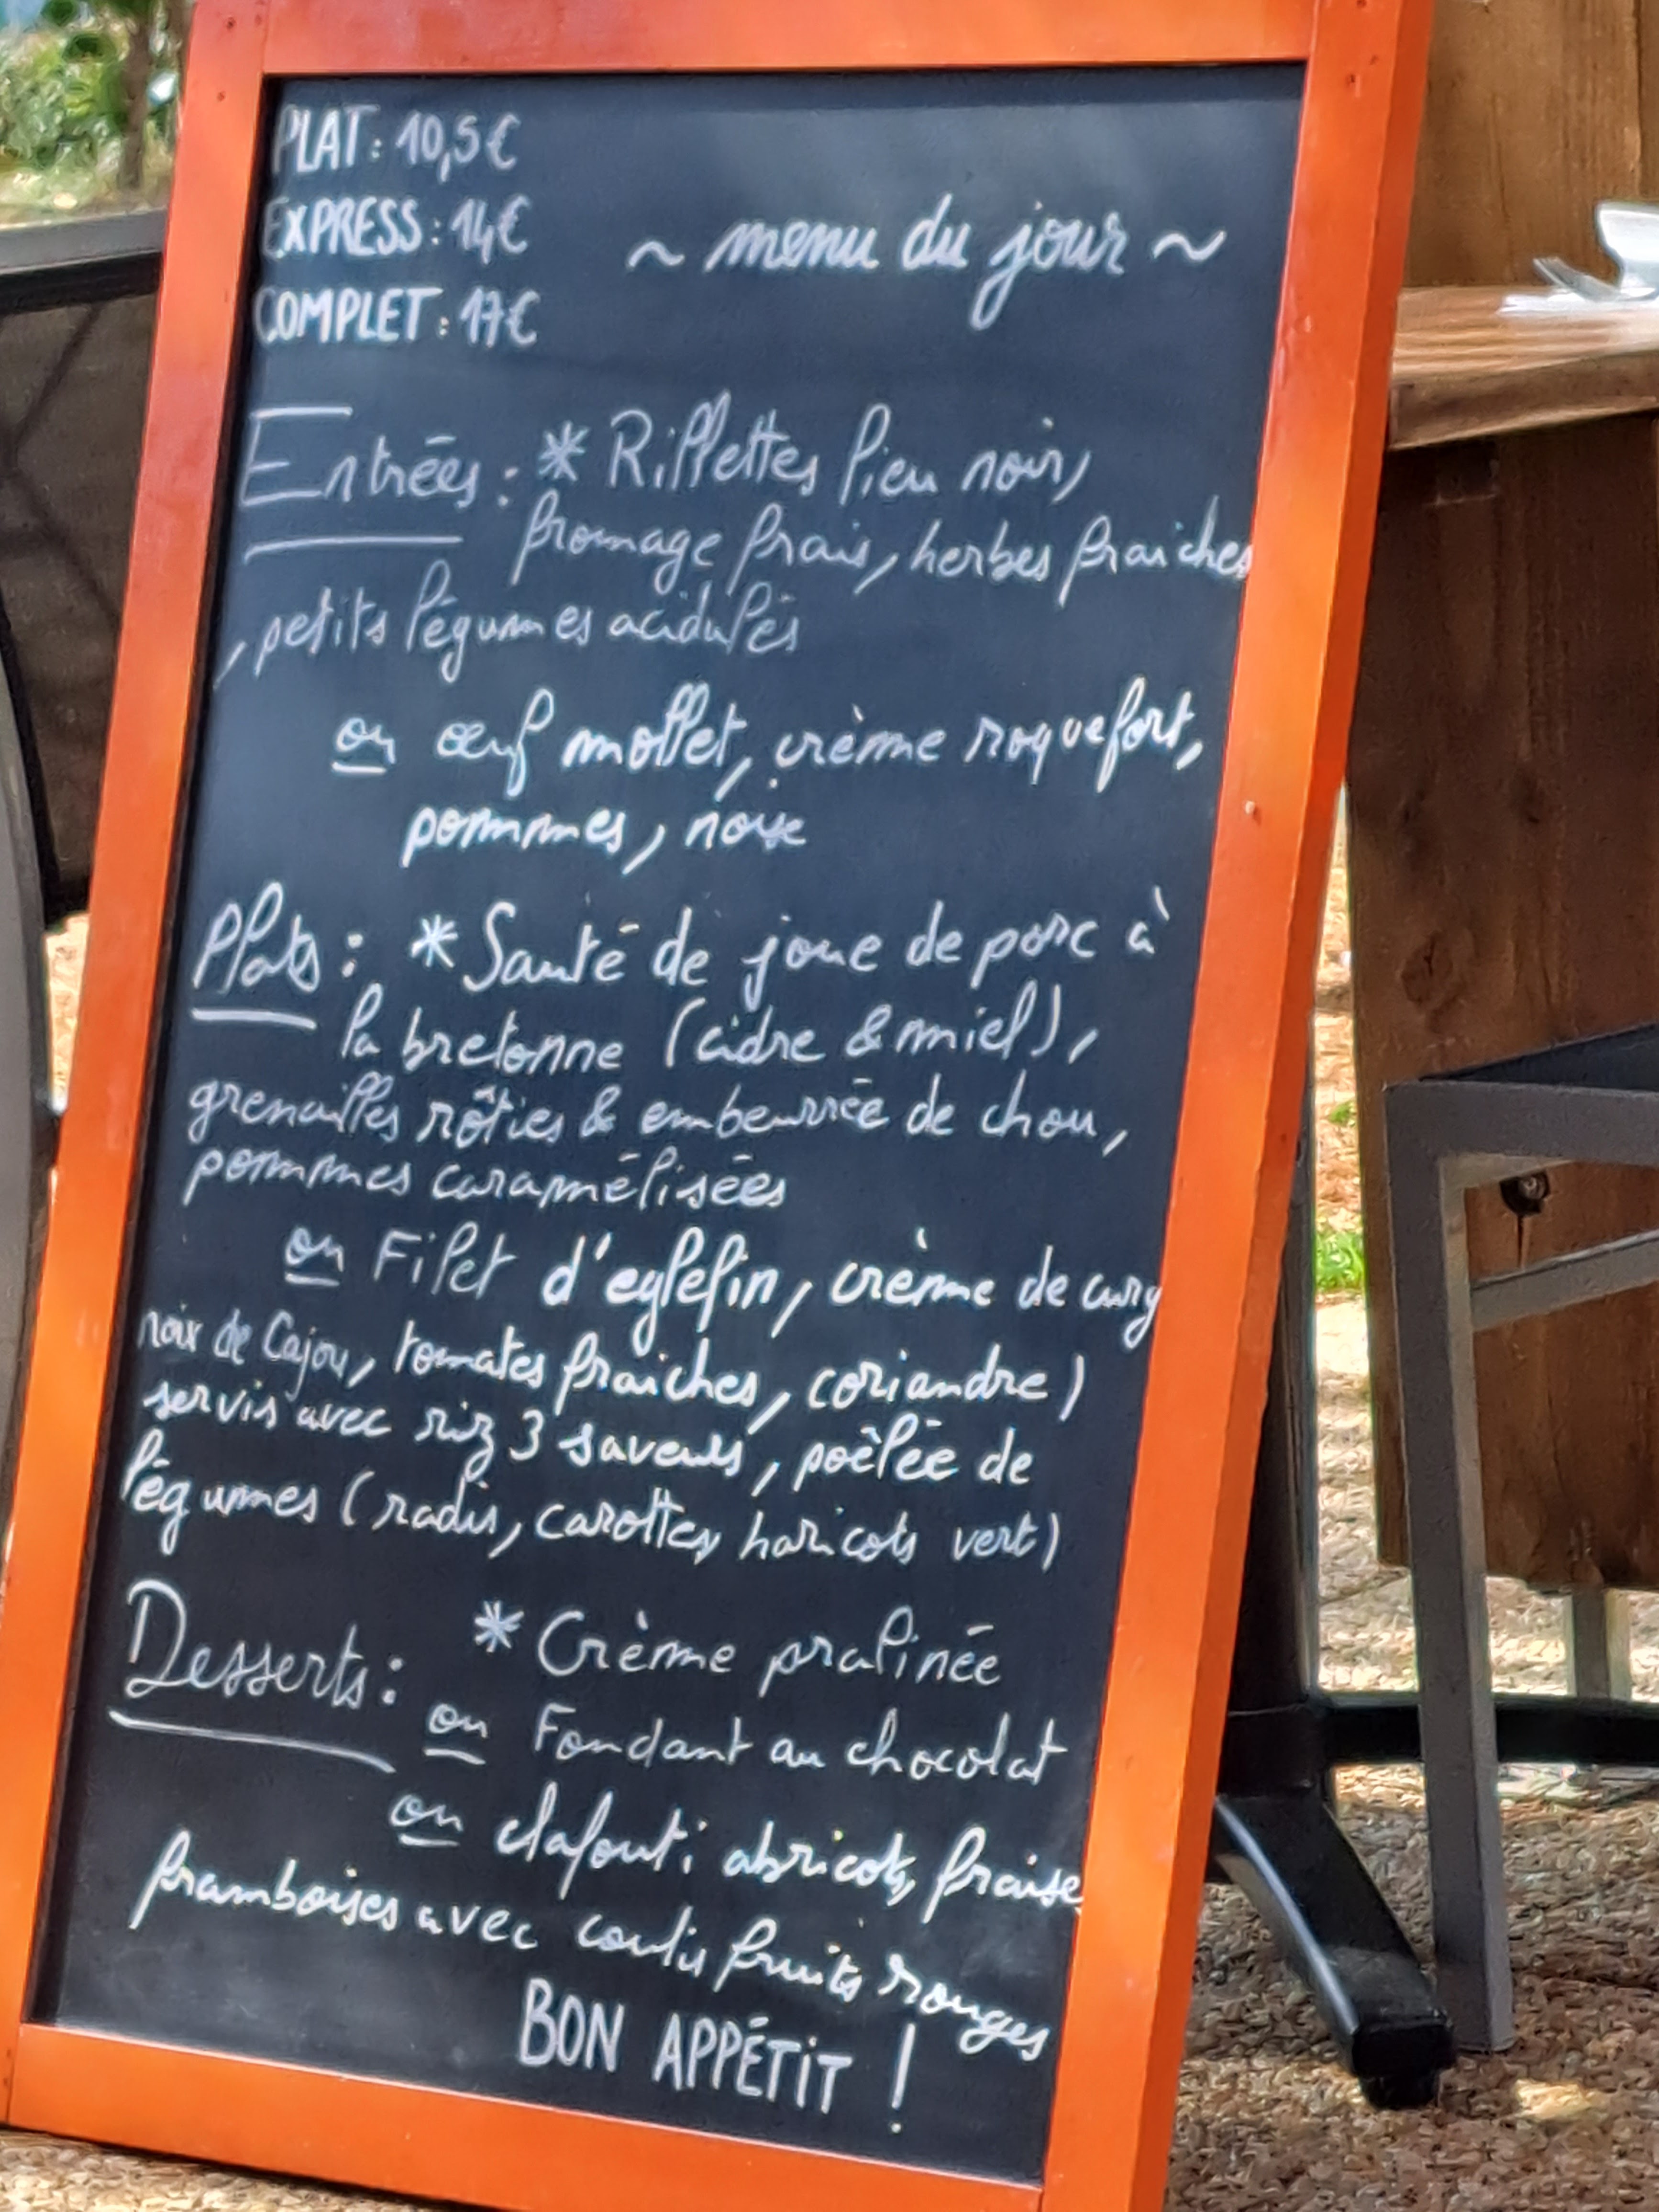 PLAT : 10,5€
EXPRESS : 14€
COMPLET : 17€
~ menu du jour ~
Entrées : * Rillettes lieu noir,
fromage frais, herbes fraiches
, petits légumes acidulés
ou œuf mollet, crème roquefort,
pommes, noix
Plats : * Sauté de joue de porc à
la bretonne (cidre & miel),
grenailles rôties & embeurrée de chou,
pommes caramélisées
ou Filet d'eglefin, crème de curry
noix de Cajou, tomates fraiches, coriandre)
servis avec riz 3 saveurs, poêlée de
légumes (radis, carottes, haricots vert)
Desserts : * Crème pralinée
ou Fondant au chocolat
ou clafouti abricots, fraise
framboises avec coulis fruits rouges
BON APPÉTIT !